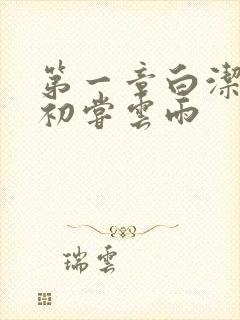 第一章白潔
初嘗雲雨
瑞雲